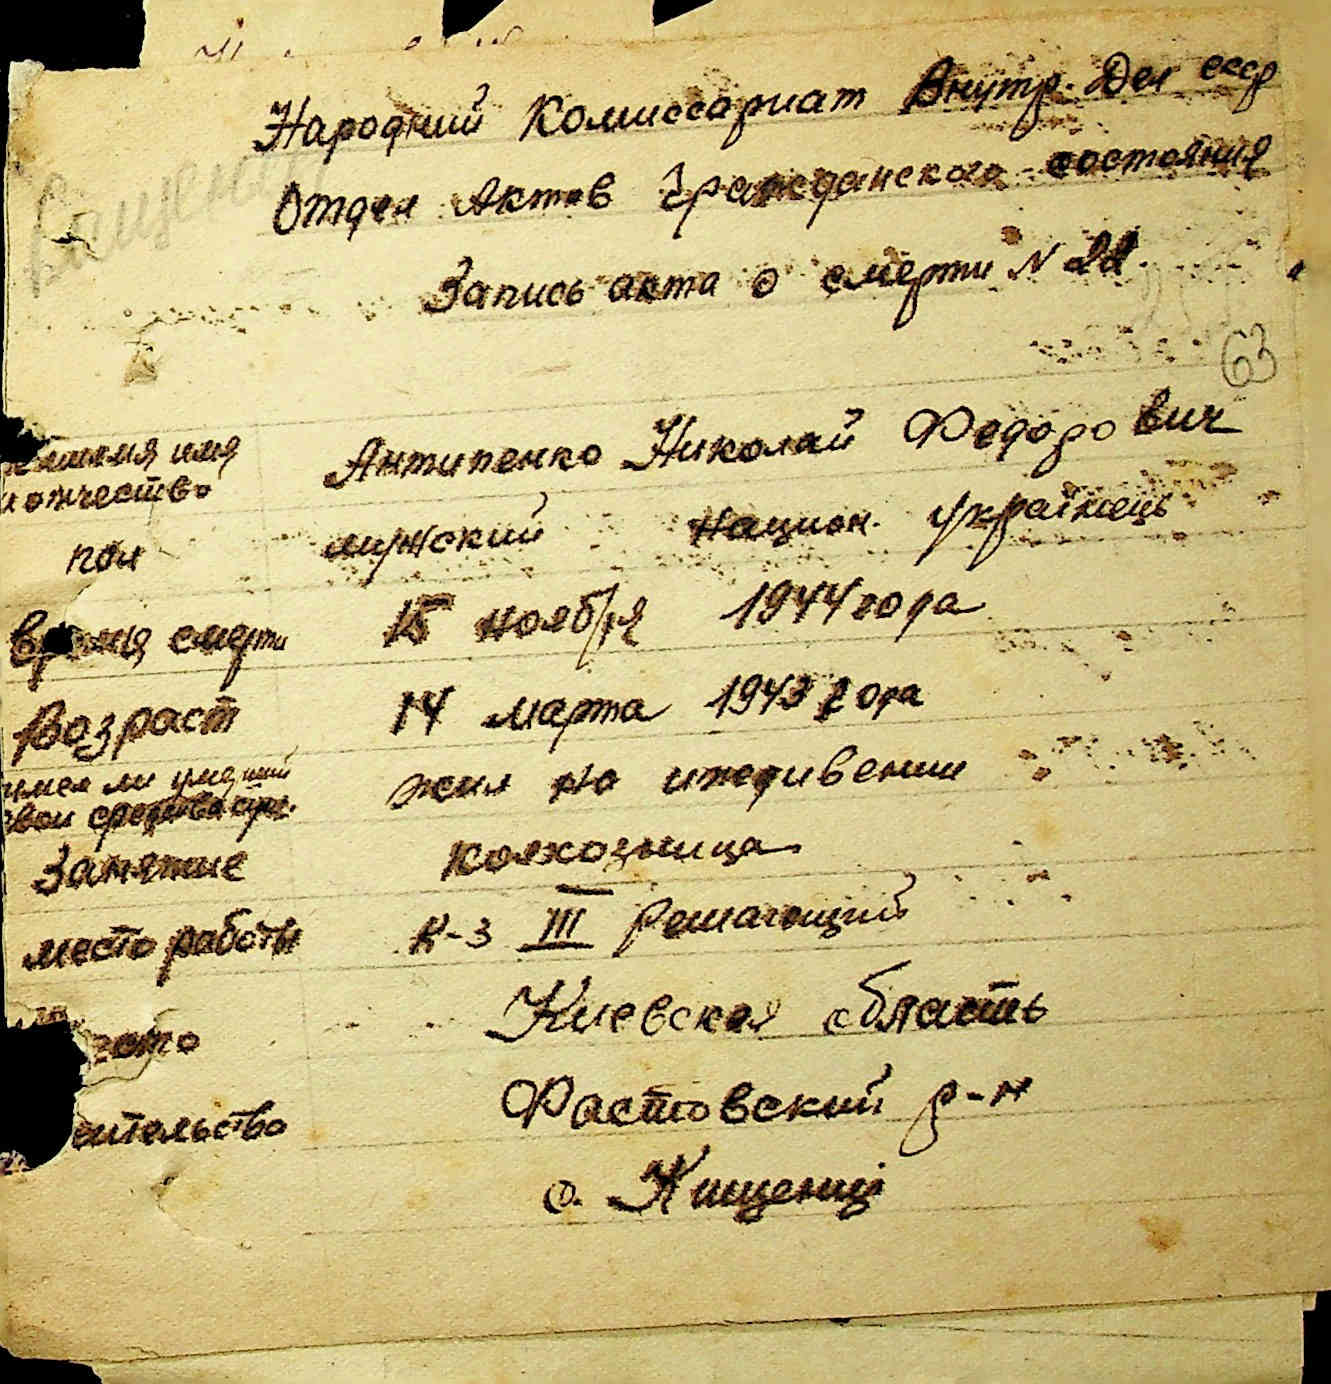 Народний Комиссариат Внутр. Дел ссср
Отдел Актов Гражданского состояния
Запись акта о смерти N 22.
63
имя
отчество
Антипенко Николай Федорович
пол мужский национ. українець
время смерти 15 ноября 1944 года
Возраст 14 марта 1943 года
имел ли умерший
свои средства
жил на иждивении
Занятие колхозница
место работы к-з III Решающий
Киевская область
жительство Фастовский р-н
с. Кищенці